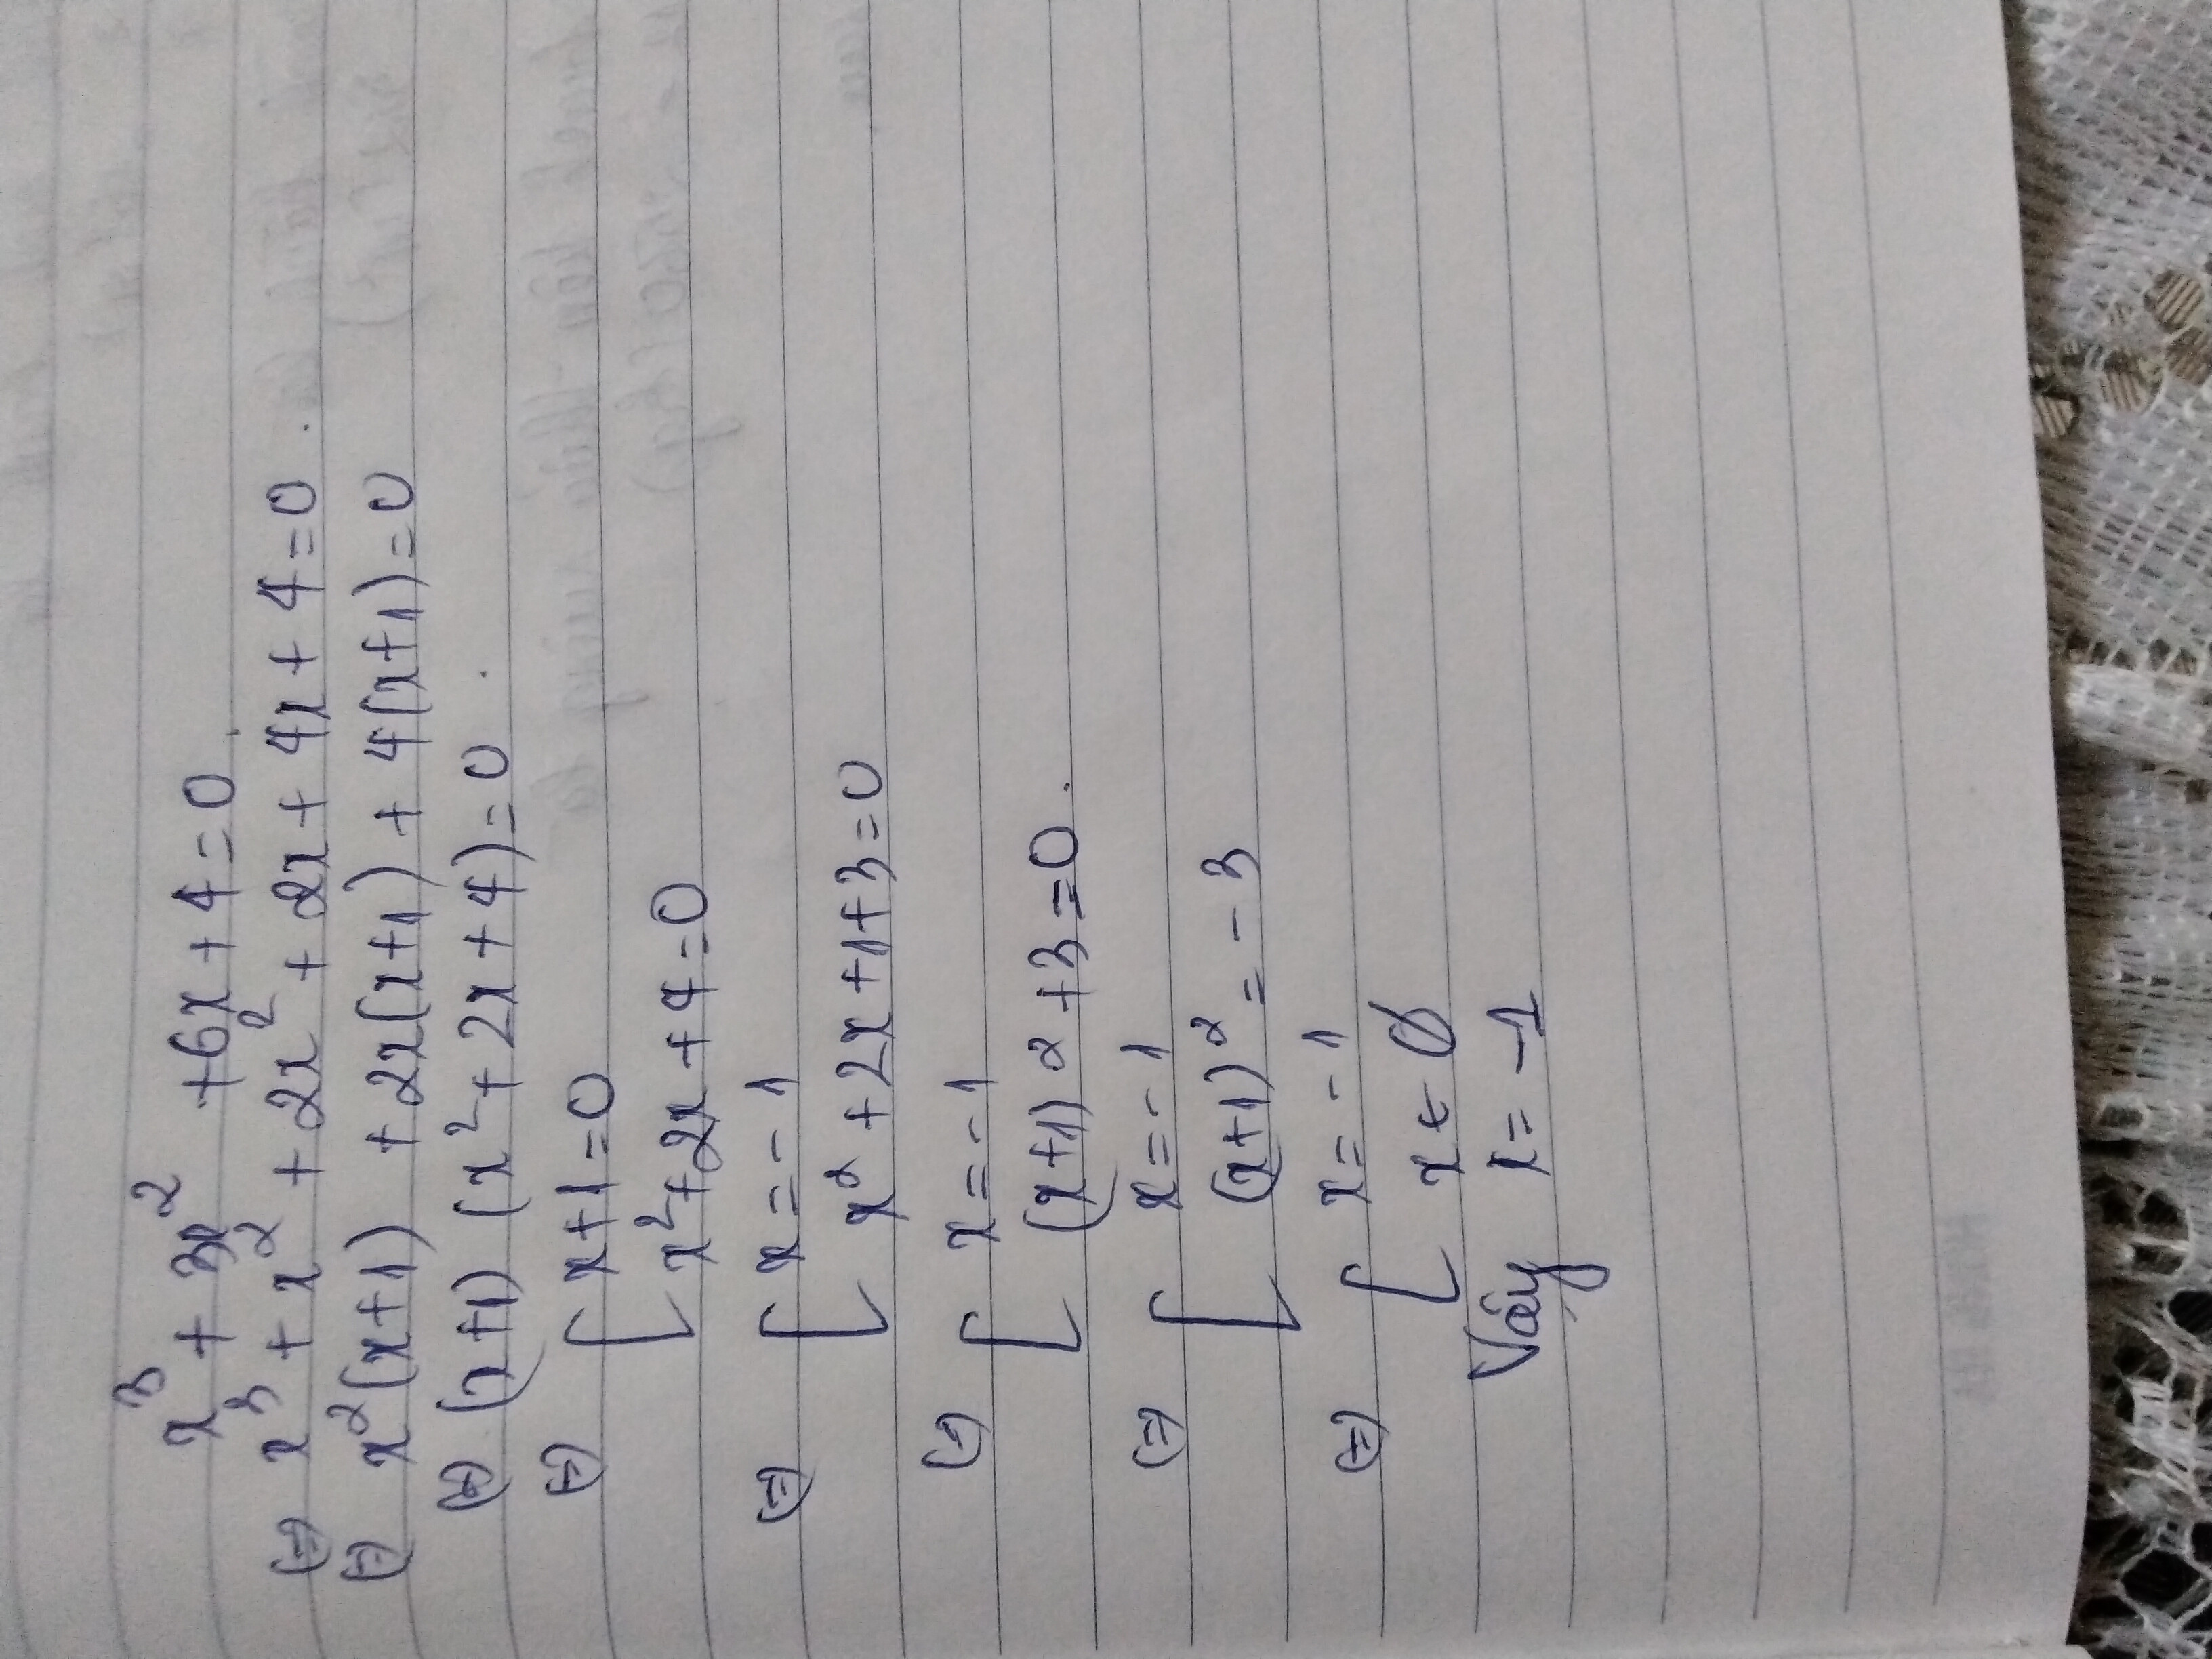 x³ + 3x² + 6x + 4 = 0
(=) x³ + x² + 2x² + 2x + 4x + 4 = 0.
(=) x²(x+1) + 2x(x+1) + 4(x+1) = 0
(=) (x+1) (x² + 2x + 4) = 0
(=) [ x+1 = 0
x² + 2x + 4 = 0
(=) [ x = -1
x² + 2x + 1 + 3 = 0
(=) [ x = -1
(x+1)² + 3 = 0.
(=) [ x = -1
(x+1)² = -3
(=) [ x = -1
x ∈ ∅
Vậy x = -1